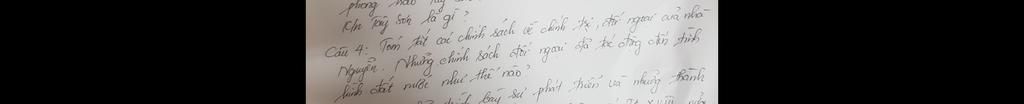 phong nào Tây
K/n Tây Sơn là gì?
Câu 4: Tóm tắt các chính sách về chính trị, đối ngoại của nhà
Nguyễn. Những chính sách đối ngoại đã tác động đến tình
hình đất nước như thế nào?
trình bày sự phát triển và những thành